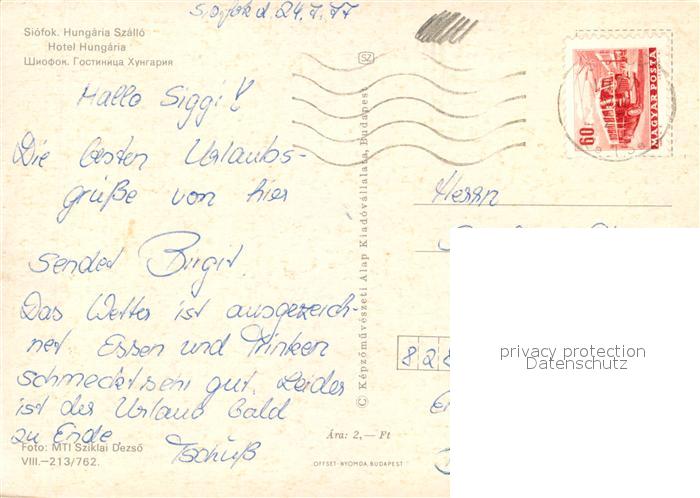 Siófok d. 24.7.77
Siófok. Hungária Szálló
Hotel Hungária
Шиофок. Гостиница Хунгария
Hallo Siggi!
Die besten Urlaubs-
grüße von hier
sendet Birgit.
Das Wetter ist ausgezeich-
net Essen und Trinken
schmeckt sehr gut. Leider
ist der Urlaub bald
zu Ende.
Tschüß
Foto: MTI Sziklai Dezső
VIII.—213/762.
SZ
© Képzőművészeti Alap Kiadóvállalata, Budapest
Ára: 2,— Ft
OFFSET-NYOMDA, BUDAPEST
60f
MAGYAR POSTA
Herrn
828
privacy protection
Datenschutz